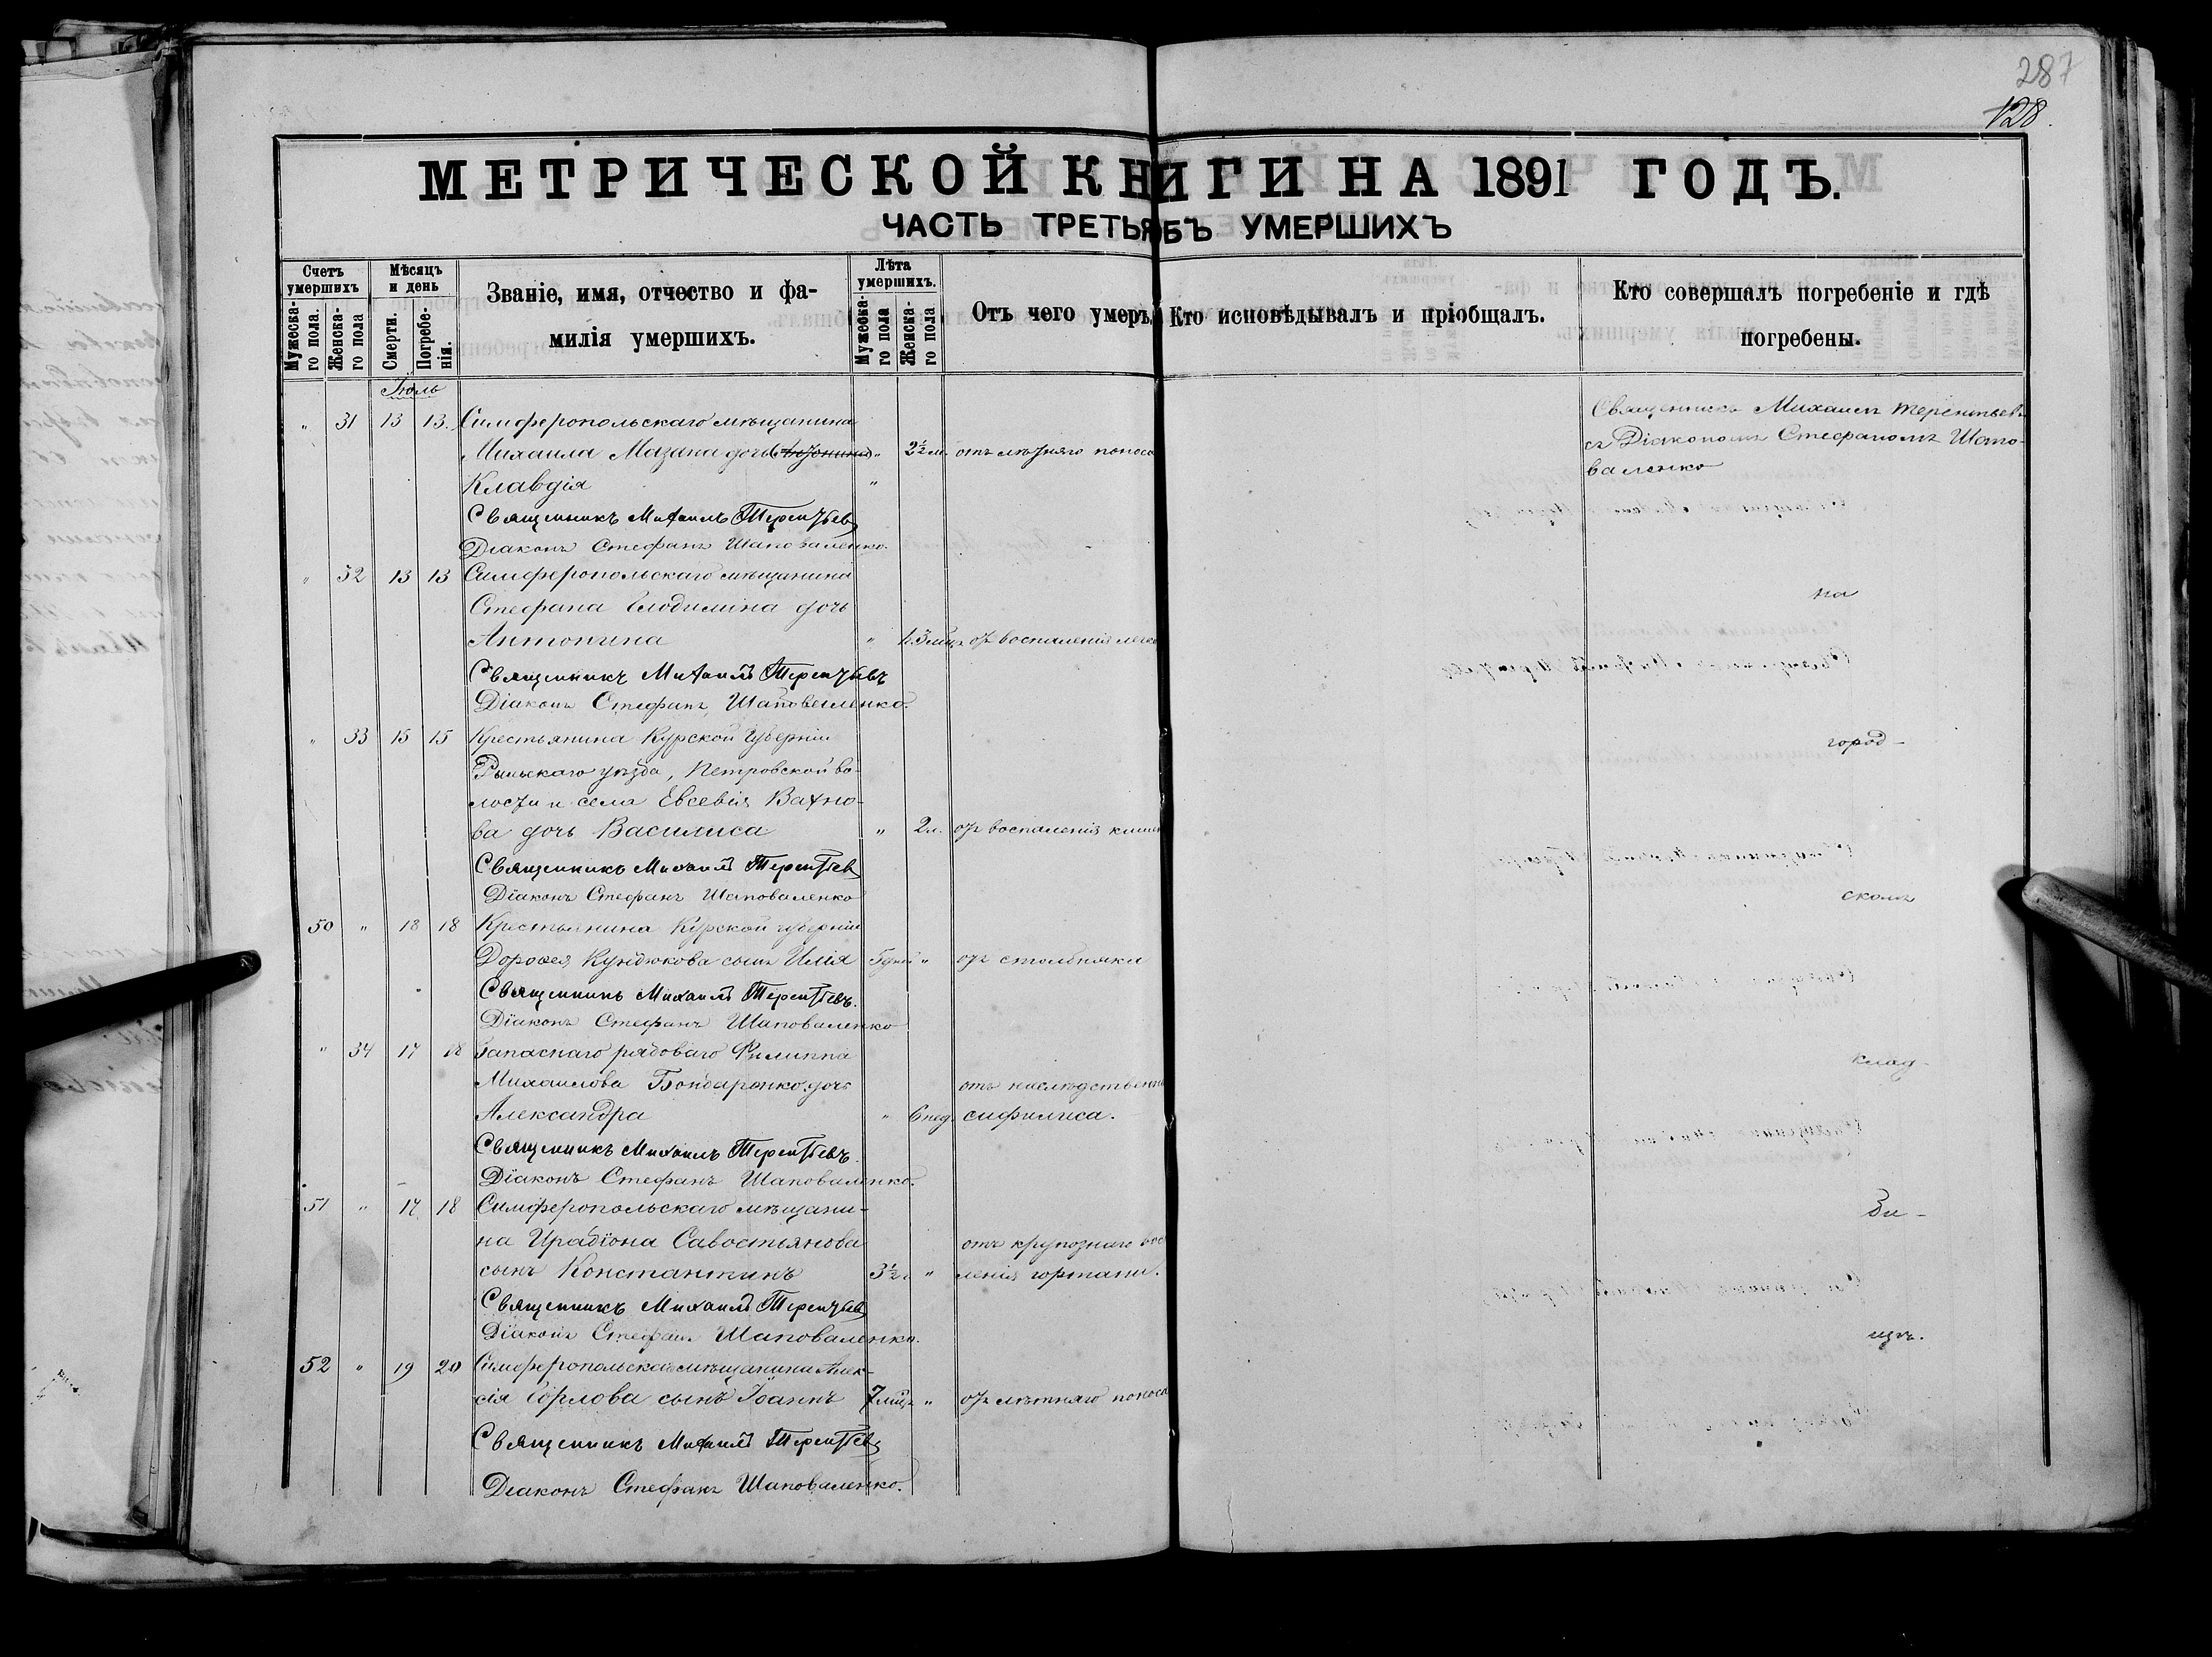 287
128.
МЕТРИЧЕСКОЙ КНИГИ НА 1891 ГОДЪ.
ЧАСТЬ ТРЕТЬЯ БЪ УМЕРШИХЪ
Счетъ умершихъ
Мужеска-го пола.
Женска-го пола
Мѣсяцъ и день
Смерти.
Погребе-нія.
Званіе, имя, отчество и фа-
милія умершихъ.
Лѣта умершихъ.
Мужеска-го пола
Женска-го пола
Отъ чего умеръ
Кто исповѣдывалъ и пріобщалъ.
Кто совершалъ погребеніе и гдѣ
погребены.
Іюль
" 31 13 13. Симферопольскаго мѣщанина
Михаила Мазана дочь " 2½ м. отъ лѣтняго поноса
Клавдія "
Священникъ Михаилъ Терентьевъ
Діаконъ Стефанъ Шаповаленко.
" 32 13 13 Симферопольскаго мѣщанина
Стефана дочь
Антонина " 1. 3 мѣц. от воспаленія леген
Священникъ Михаилъ Терентьевъ
Діаконъ Стефанъ Шаповаленко.
" 33 15 15 Крестьянина Курской губерніи
Рыльскаго уѣзда, Петровской во-
лости и села Евсевія Вахно-
ва дочь Василиса " 2 л. от воспаленія кишек
Священникъ Михаилъ Терентьевъ
Діаконъ Стефанъ Шаповаленко
50 " 18 18 Крестьянина Курской губерніи
Дороѳея Кундюкова сынъ Илія 5 дней " от столбняка
Священникъ Михаилъ Терентьевъ.
Діаконъ Стефанъ Шаповаленко
" 34 17 18 Запаснаго рядоваго Филиппа
Михаилова Бондаренко дочь отъ наслѣдственна
Александра " 6 нед. сифилиса.
Священникъ Михаилъ Терентьевъ.
Діаконъ Стефанъ Шаповаленко.
51 " 17 18 Симферопольскаго мѣщани-
на Ирадіона Савостьянова отъ крупознаго вос
сынъ Константинъ 3½ " ленія гортани.
Священникъ Михаилъ Терентьевъ
Діаконъ Стефанъ Шаповаленко.
52 " 19 20 Симферопольскаго мѣщанина Алек-
сія Орлова сынъ Іоаннъ 7 мѣц. " от лѣтняго поноса
Священникъ Михаилъ Терентьевъ
Діаконъ Стефанъ Шаповаленко.
Священникъ Михаилъ Терентьевъ
съ Діакономъ Стефаномъ Шапо-
валенко
на
город-
скомъ
клад-
би-
щѣ.